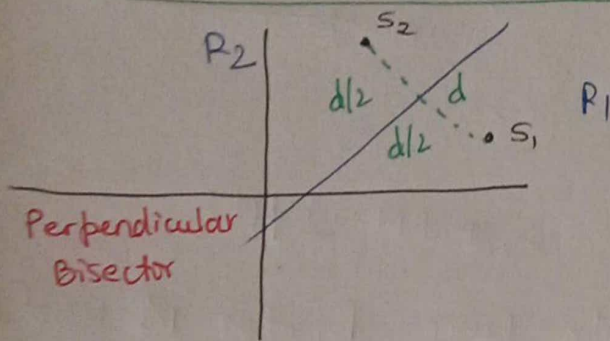 S2
R2
d/2
d
R1
d/2
S1
Perpendicular
Bisector